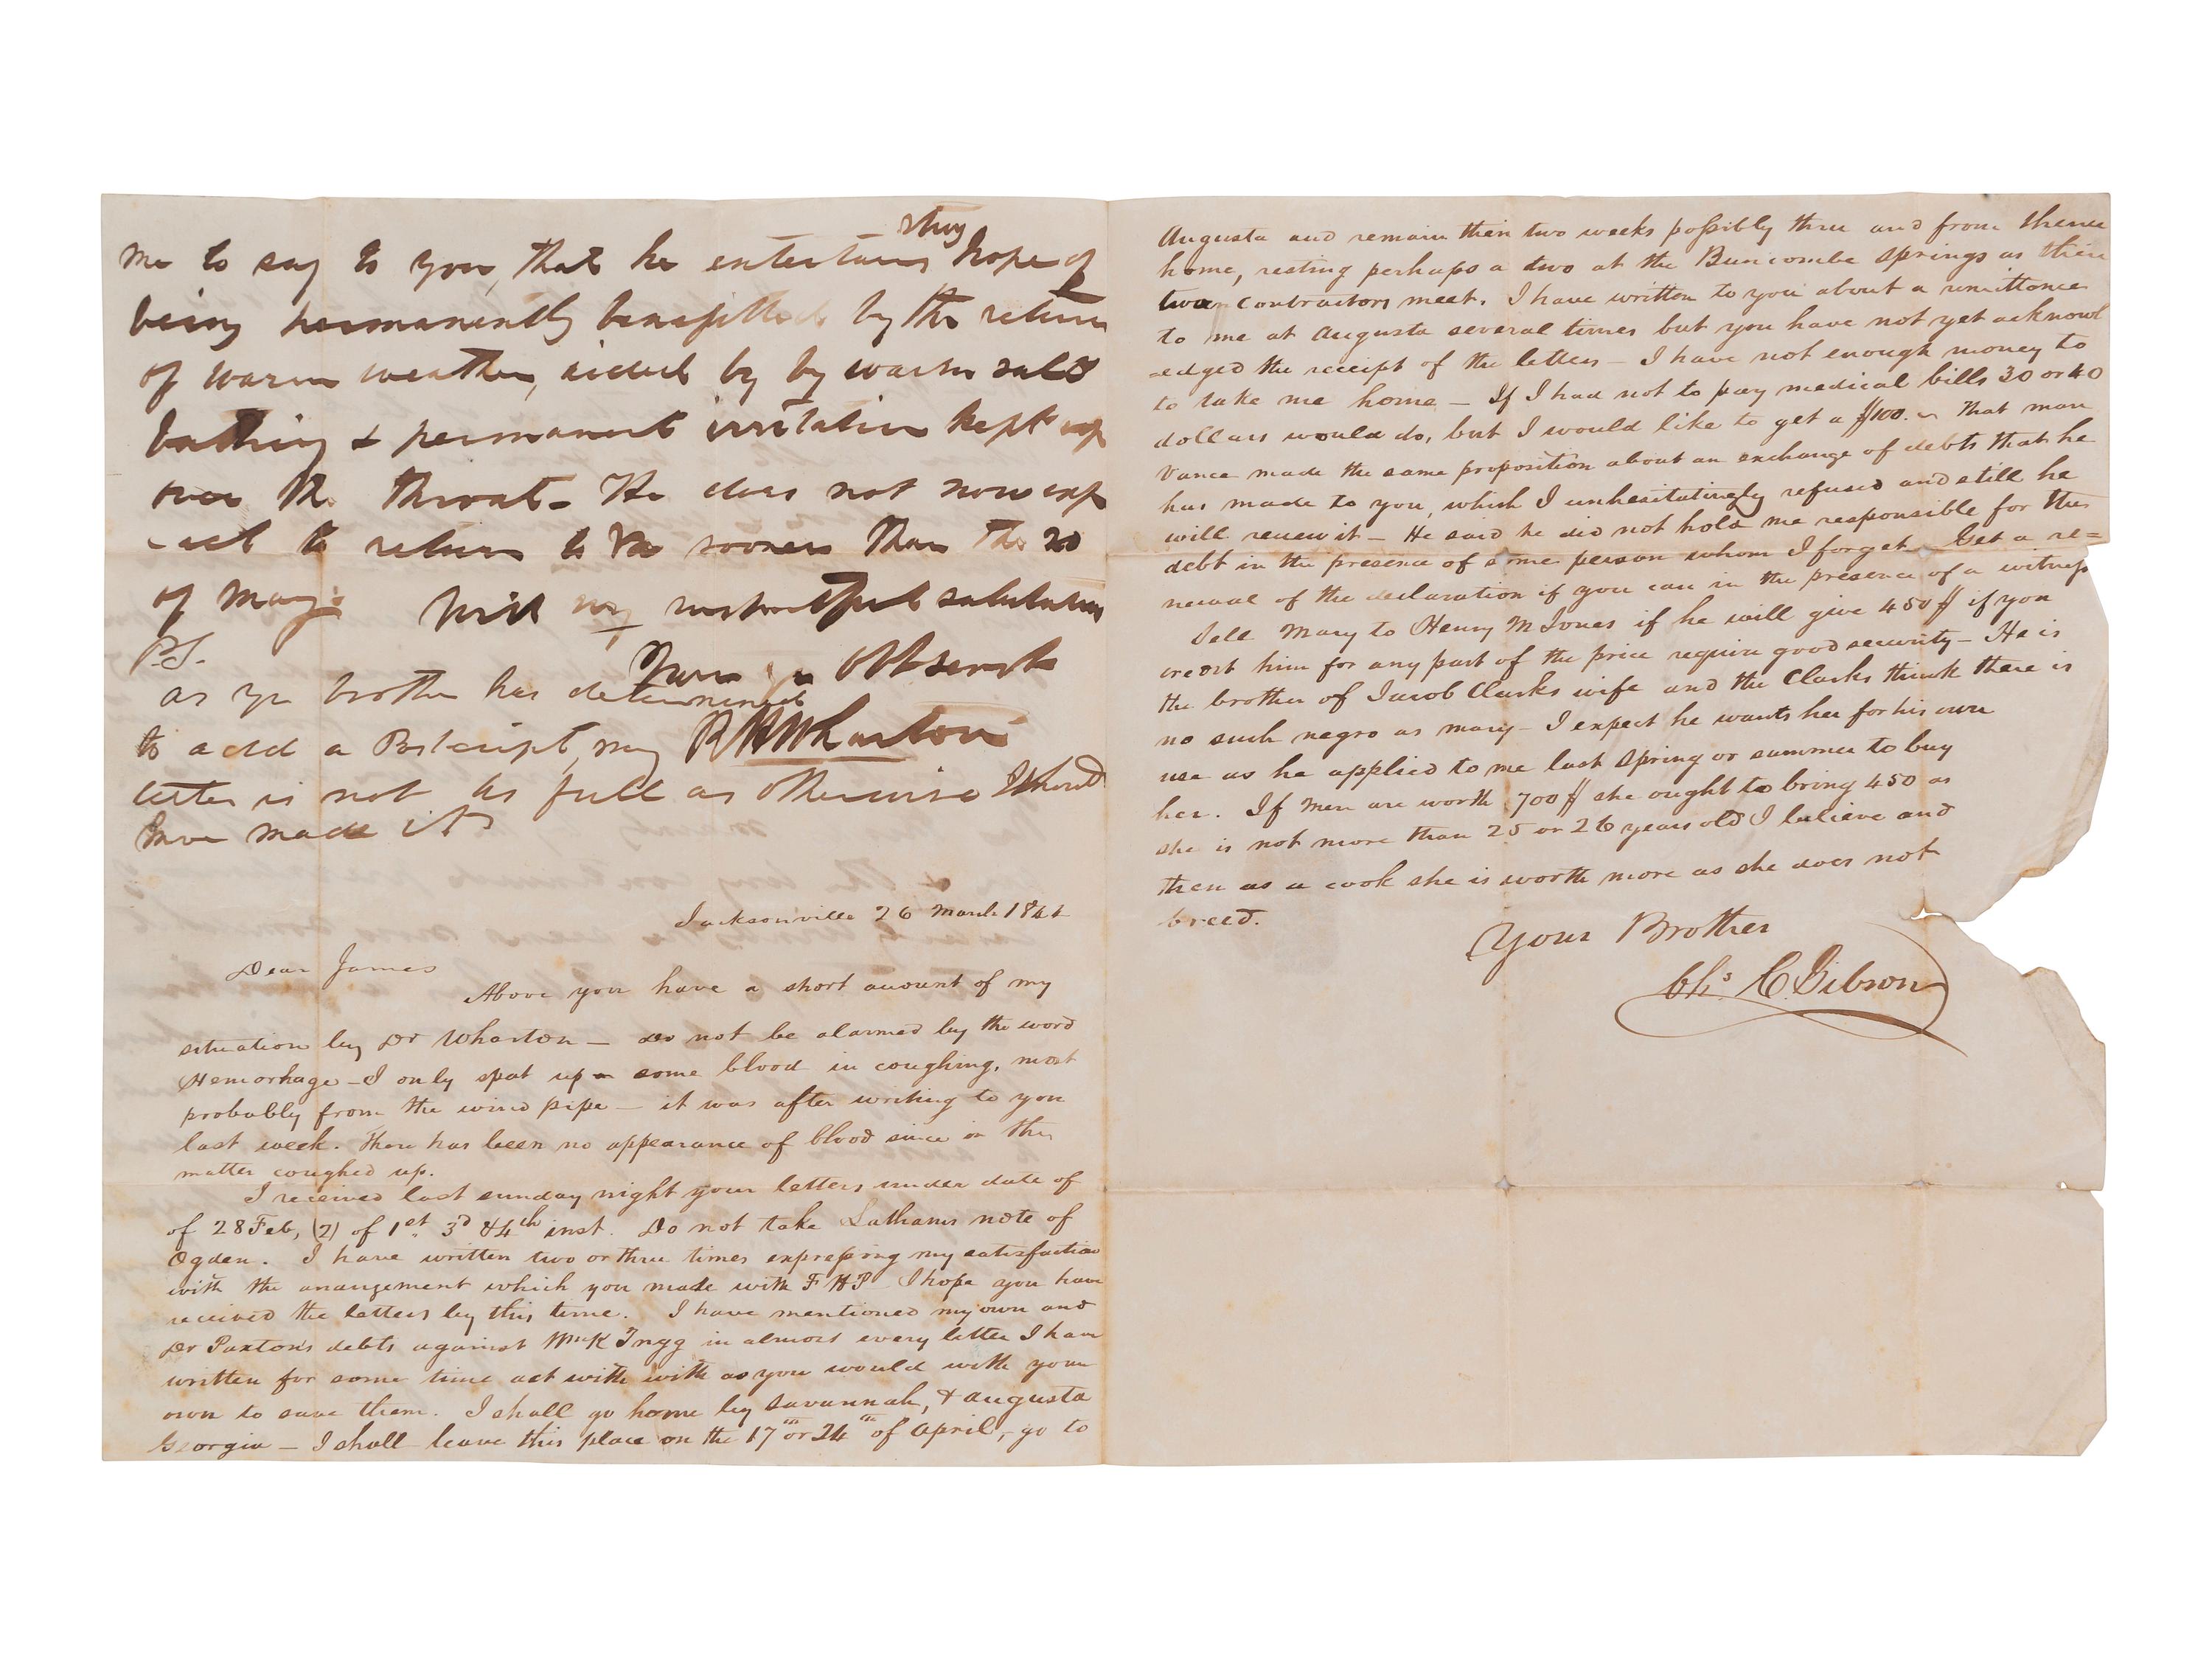 strong
me to say to you, that he entertains hope of
being permanently benefitted by the return
of warm weather, aided by by warm salt
bathing & permanent irritation kept up
over the throat - He does not now exp
-ect to return to Va sooner than the 20
of May. With my respectful salutations
Your Obt servt
R H Wharton
P.S.
as yr brother has determined
to add a Postcript, my
letter is not as full as otherwise I should
have made it
Jacksonville 26 March 1844
Dear James
Above you have a short account of my
situation by Dr Wharton - Do not be alarmed by the word
Hemorhage - I only spat up some blood in coughing, most
probably from the wind pipe - it was after writing to you
last week. There has been no appearance of blood since in the
matter coughed up.
I received last sunday night your letters under date of
of 28 Feb, (2) of 1st. 3d & 4th inst. Do not take Lathams note of
Ogden. I have written two or three times expressing my satisfaction
with the arrangement which you made with F H P I hope you have
received the letters by this time. I have mentioned my own and
Dr Paxton's debts against Wm K Trigg in almost every letter I have
written for some time act with with as you would with your
own to save them. I shall go home by Savannah, & Augusta
Georgia - I shall leave this place on the 17th or 24th of April, go to
Augusta and remain then two weeks possibly three and from thence
home, resting perhaps a two at the Buncombe Springs as there
two contractors meet. I have written to you about a remittance
to me at Augusta several times but you have not yet acknowl
-edged the receipt of the letters - I have not enough money to
to take me home - If I had not to pay medical bills 30 or 40
dollars would do, but I would like to get a $100. That man
Vance made the same proposition about an exchange of debts that he
has made to you, which I unhesitatingly refused and still he
will renew it - He said he did not hold me responsible for the
debt in the presence of some person whom I forget. Get a re=
newal of the declaration if you can in the presence of a witness
Sell Mary to Henry M Jones if he will give 450$ if you
credit him for any part of the price require good security - He is
the brother of Jacob Clarks wife and the Clarks think there is
no such negro as mary - I expect he wants her for his own
use as he applied to me last spring or summer to buy
her. If men are worth 700$ she ought to bring 450 as
she is not more than 25 or 26 years old I believe and
then as a cook she is worth more as she does not
breed.
Your Brother
Chs. C. Gibson